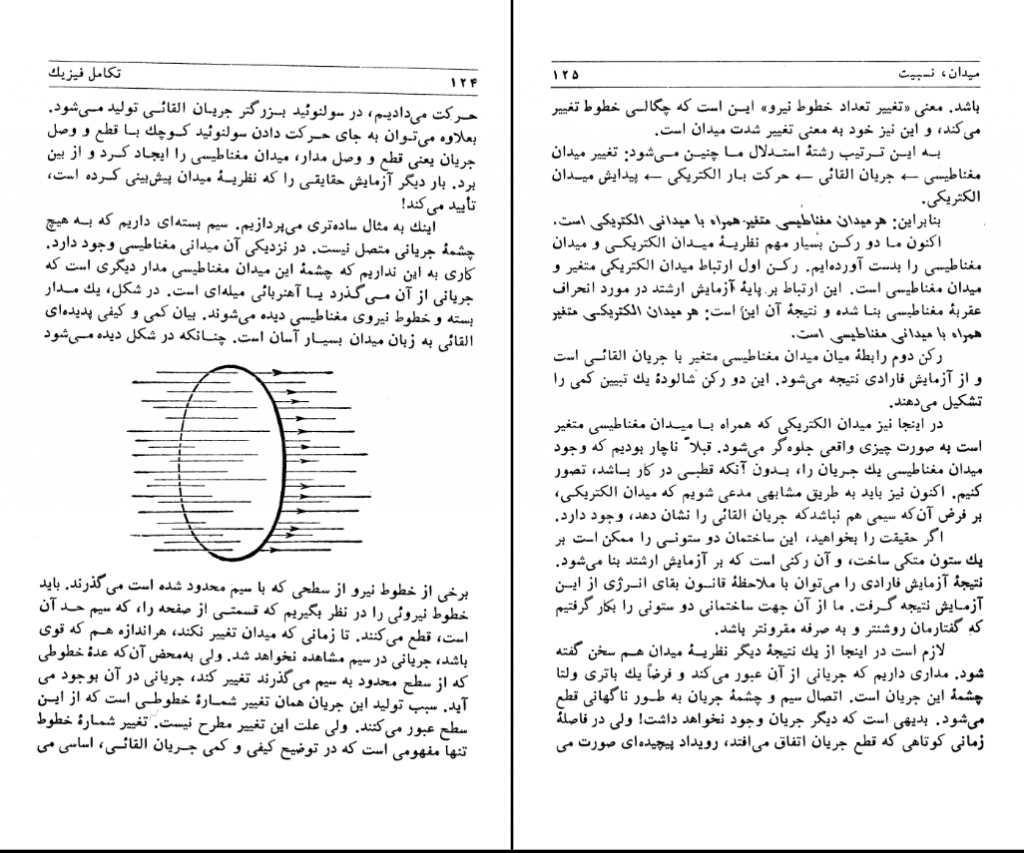 تکامل فیزیك
۱۲۴
حرکت می‌دادیم، در سولنوئید بزرگتر جریان القائی تولید می‌شود.
بعلاوه می‌توان به جای حرکت دادن سولنوئید کوچك با قطع و وصل
جریان یعنی قطع و وصل مدار، میدان مغناطیسی را ایجاد کرد و از بین
برد. بار دیگر آزمایش حقایقی را که نظریهٔ میدان پیش‌بینی کرده است،
تأیید می‌کند!
اینك به مثال ساده‌تری می‌پردازیم. سیم بسته‌ای داریم که به هیچ
چشمهٔ جریانی متصل نیست. در نزدیکی آن میدانی مغناطیسی وجود دارد.
کاری به این نداریم که چشمهٔ این میدان مغناطیسی مدار دیگری است که
جریانی از آن می‌گذرد یا آهنربائی میله‌ای است. در شکل، یك مدار
بسته و خطوط نیروی مغناطیسی دیده می‌شوند. بیان کمی و کیفی پدیده‌ای
القائی به زبان میدان بسیار آسان است. چنانکه در شکل دیده می‌شود
برخی از خطوط نیرو از سطحی که با سیم محدود شده است می‌گذرند. باید
خطوط نیروئی را در نظر بگیریم که قسمتی از صفحه را، که سیم حد آن
است، قطع می‌کنند. تا زمانی که میدان تغییر نکند، هراندازه هم که قوی
باشد، جریانی در سیم مشاهده نخواهد شد. ولی به‌محض آن‌که عدهٔ خطوطی
که از سطح محدود به سیم می‌گذرند تغییر کند، جریانی در آن بوجود می
آید. سبب تولید این جریان همان تغییر شمارهٔ خطوطی است که از این
سطح عبور می‌کنند. ولی علت این تغییر مطرح نیست. تغییر شمارهٔ خطوط
تنها مفهومی است که در توضیح کیفی و کمی جریان القائی، اساسی می
میدان، نسبیت
۱۲۵
باشد. معنی «تغییر تعداد خطوط نیرو» این است که چگالی خطوط تغییر
می‌کند، و این نیز خود به معنی تغییر شدت میدان است.
به این ترتیب رشتهٔ استدلال ما چنین می‌شود: تغییر میدان
مغناطیسی ← جریان القائی ← حرکت بار الکتریکی ← پیدایش میدان
الکتریکی.
بنابراین: هر میدان مغناطیسی متغیر همراه با میدانی الکتریکی است.
اکنون ما دو رکن بسیار مهم نظریهٔ میدان الکتریکی و میدان
مغناطیسی را بدست آورده‌ایم. رکن اول ارتباط میدان الکتریکی متغیر و
میدان مغناطیسی است. این ارتباط بر پایهٔ آزمایش ارشتد در مورد انحراف
عقربهٔ مغناطیسی بنا شده و نتیجهٔ آن این است: هر میدان الکتریکی متغیر
همراه با میدانی مغناطیسی است.
رکن دوم رابطهٔ میان میدان مغناطیسی متغیر با جریان القائی است
و از آزمایش فارادی نتیجه می‌شود. این دو رکن شالودهٔ یك تبیین کمی را
تشکیل می‌دهند.
در اینجا نیز میدان الکتریکی که همراه با میدان مغناطیسی متغیر
است به صورت چیزی واقعی جلوه‌گر می‌شود. قبلاً ناچار بودیم که وجود
میدان مغناطیسی یك جریان را، بدون آنکه قطبی در کار باشد، تصور
کنیم. اکنون نیز باید به طریق مشابهی مدعی شویم که میدان الکتریکی،
بر فرض آن‌که سیمی هم نباشدکه جریان القائی را نشان دهد، وجود دارد.
اگر حقیقت را بخواهید، این ساختمان دو ستونی را ممکن است بر
یك ستون متکی ساخت، و آن رکنی است که بر آزمایش ارشتد بنا می‌شود.
نتیجهٔ آزمایش فارادی را می‌توان با ملاحظهٔ قانون بقای انرژی از این
آزمایش نتیجه گرفت. ما از آن جهت ساختمانی دو ستونی را بکار گرفتیم
که گفتارمان روشنتر و به صرفه مقرونتر باشد.
لازم است در اینجا از یك نتیجهٔ دیگر نظریهٔ میدان هم سخن گفته
شود. مداری داریم که جریانی از آن عبور می‌کند و فرضاً یك باتری ولتا
چشمهٔ این جریان است. اتصال سیم و چشمهٔ جریان به طور ناگهانی قطع
می‌شود. بدیهی است که دیگر جریان وجود نخواهد داشت! ولی در فاصلهٔ
زمانی کوتاهی که قطع جریان اتفاق می‌افتد، رویداد پیچیده‌ای صورت می